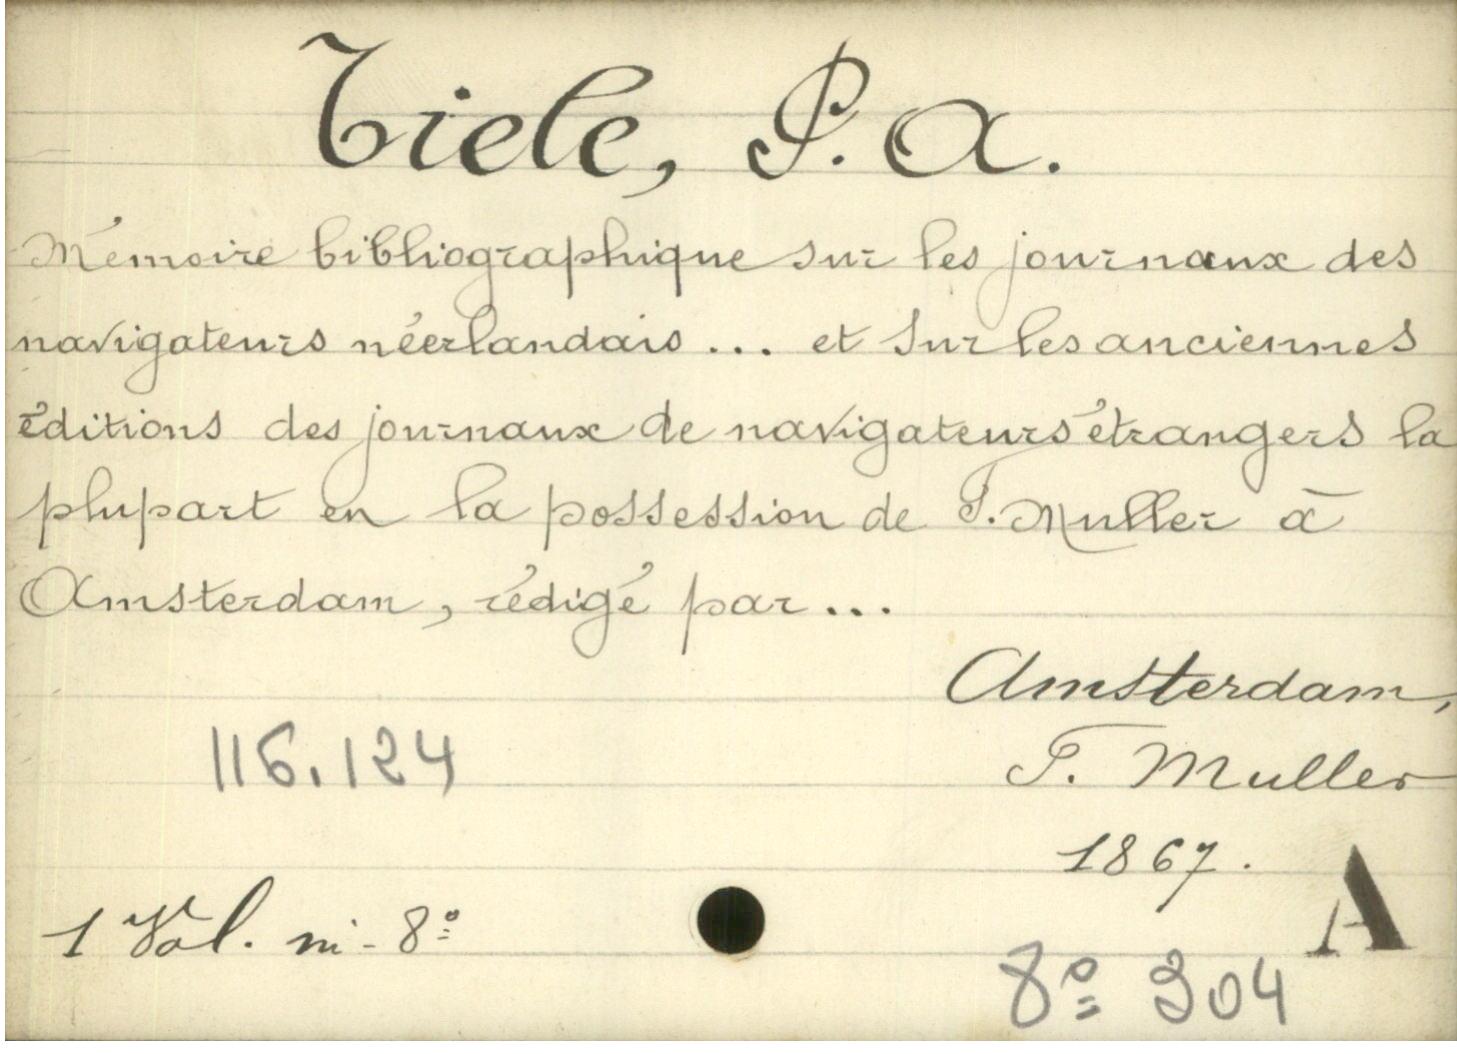 Tiele, P. A.
Mémoire bibliographique sur les journaux des
navigateurs néerlandais ... et sur les anciennes
éditions des journaux de navigateurs étrangers la
plupart en la possession de F. Muller à
Amsterdam, rédigé par ...
Amsterdam,
F. Muller
1867.
116.124
1 Vol. in-8º
A
8º 304